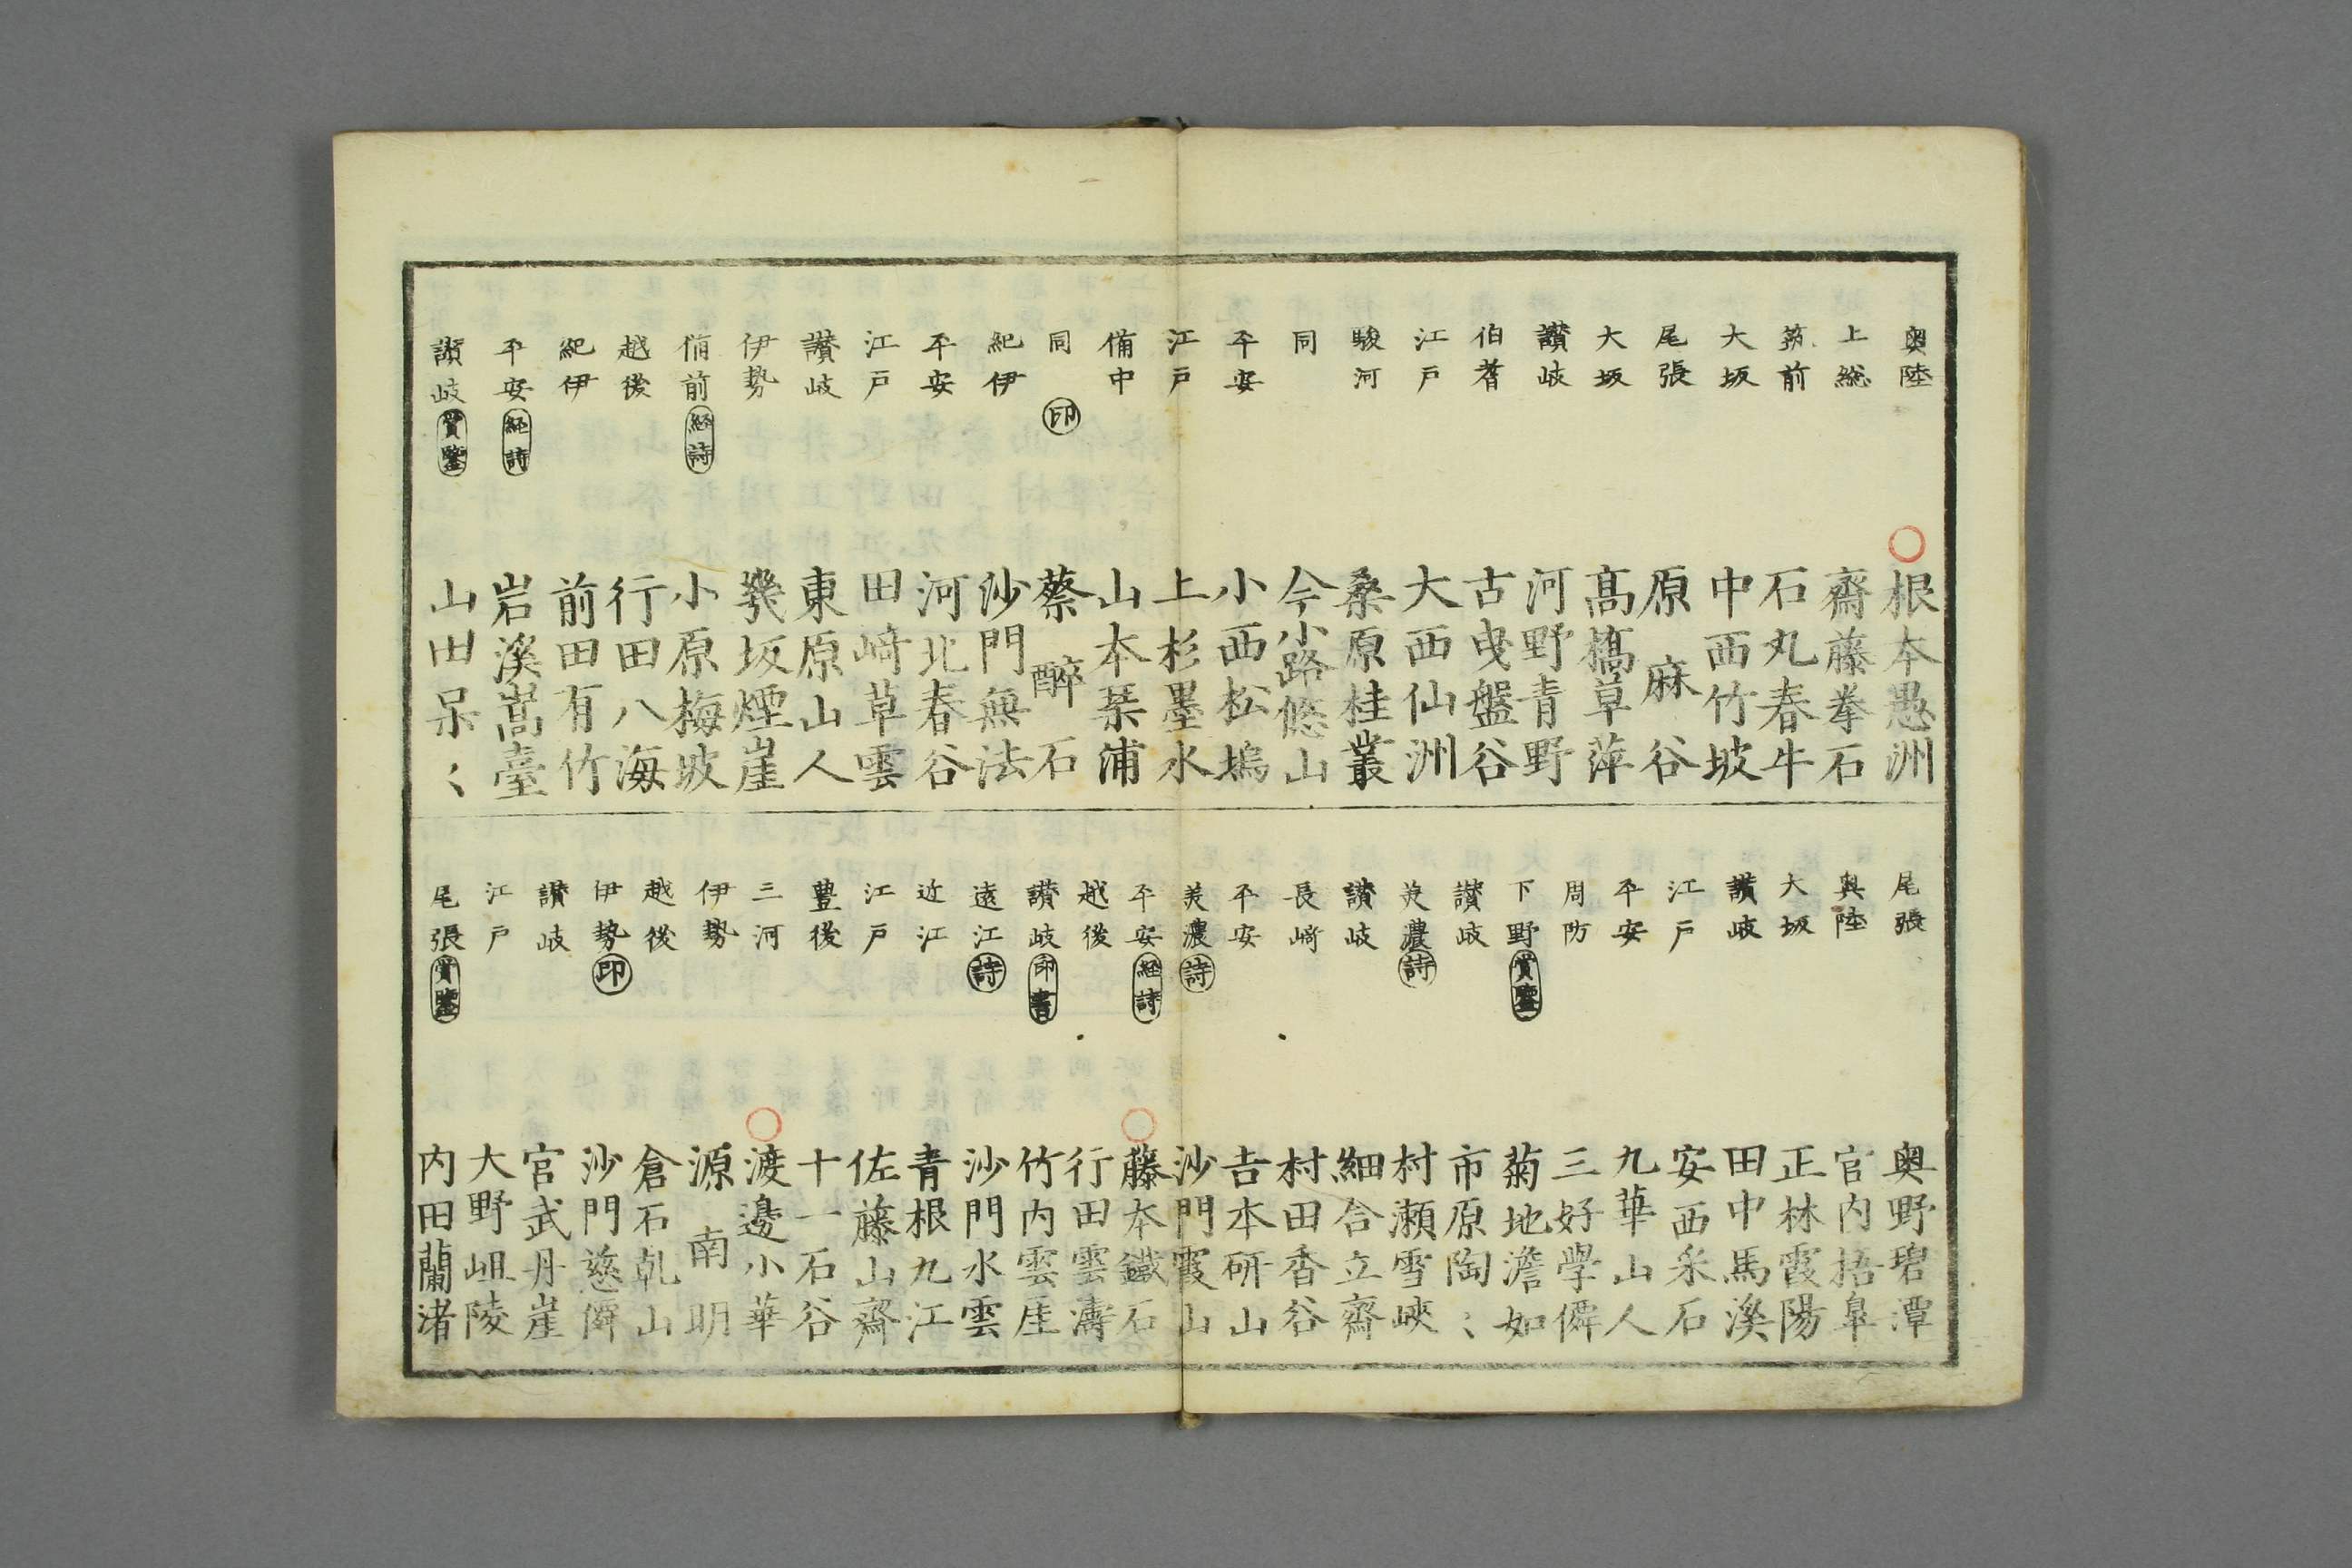 奥陸 根本愚洲
上総 齋藤拳石
筑前 石丸春牛
大坂 中西竹坡
尾張 原麻谷
大坂 髙橋草萍
讃岐 河野青野
伯耆 古曵盤谷
江戸 大西仙洲
駿河 桑原桂叢
同 今小路悠山
平安 小西松塢
江戸 上杉墨水
備中 山本琹浦
同 印 蔡醉石
紀伊 沙門無法
平安 河北春谷
江戸 田﨑草雲
讃岐 東原山人
伊勢 幾坂煙崖
備前 経詩 小原梅坡
越後 行田八海
紀伊 前田有竹
平安 経詩 岩溪嵩臺
讃岐 賞鑒 山田呆〻
尾張 奥野碧潭
奥陸 官内捂皐
大坂 正林霞陽
讃岐 田中馬溪
江戸 安西米石
平安 九華山人
周防 三好學僊
下野 賞鑒 菊地澹如
讃岐 市原陶〻
美濃 詩 村瀬雪峽
讃岐 細合立齋
長﨑 村田香谷
平安 吉本研山
美濃 詩 沙門霞山
平安 経詩 藤本鐵石
越後 行田雲濤
讃岐 印書 竹内雲崖
遠江 詩 沙門水雲
近江 青根九江
江戸 佐藤山齋
豊後 十一石谷
三河 渡邊小華
伊勢 源南明
越後 倉石乾山
伊勢 印 沙門慈僲
讃岐 官武丹崖
江戸 大野岨陵
尾張 賞鑒 内田蘭渚